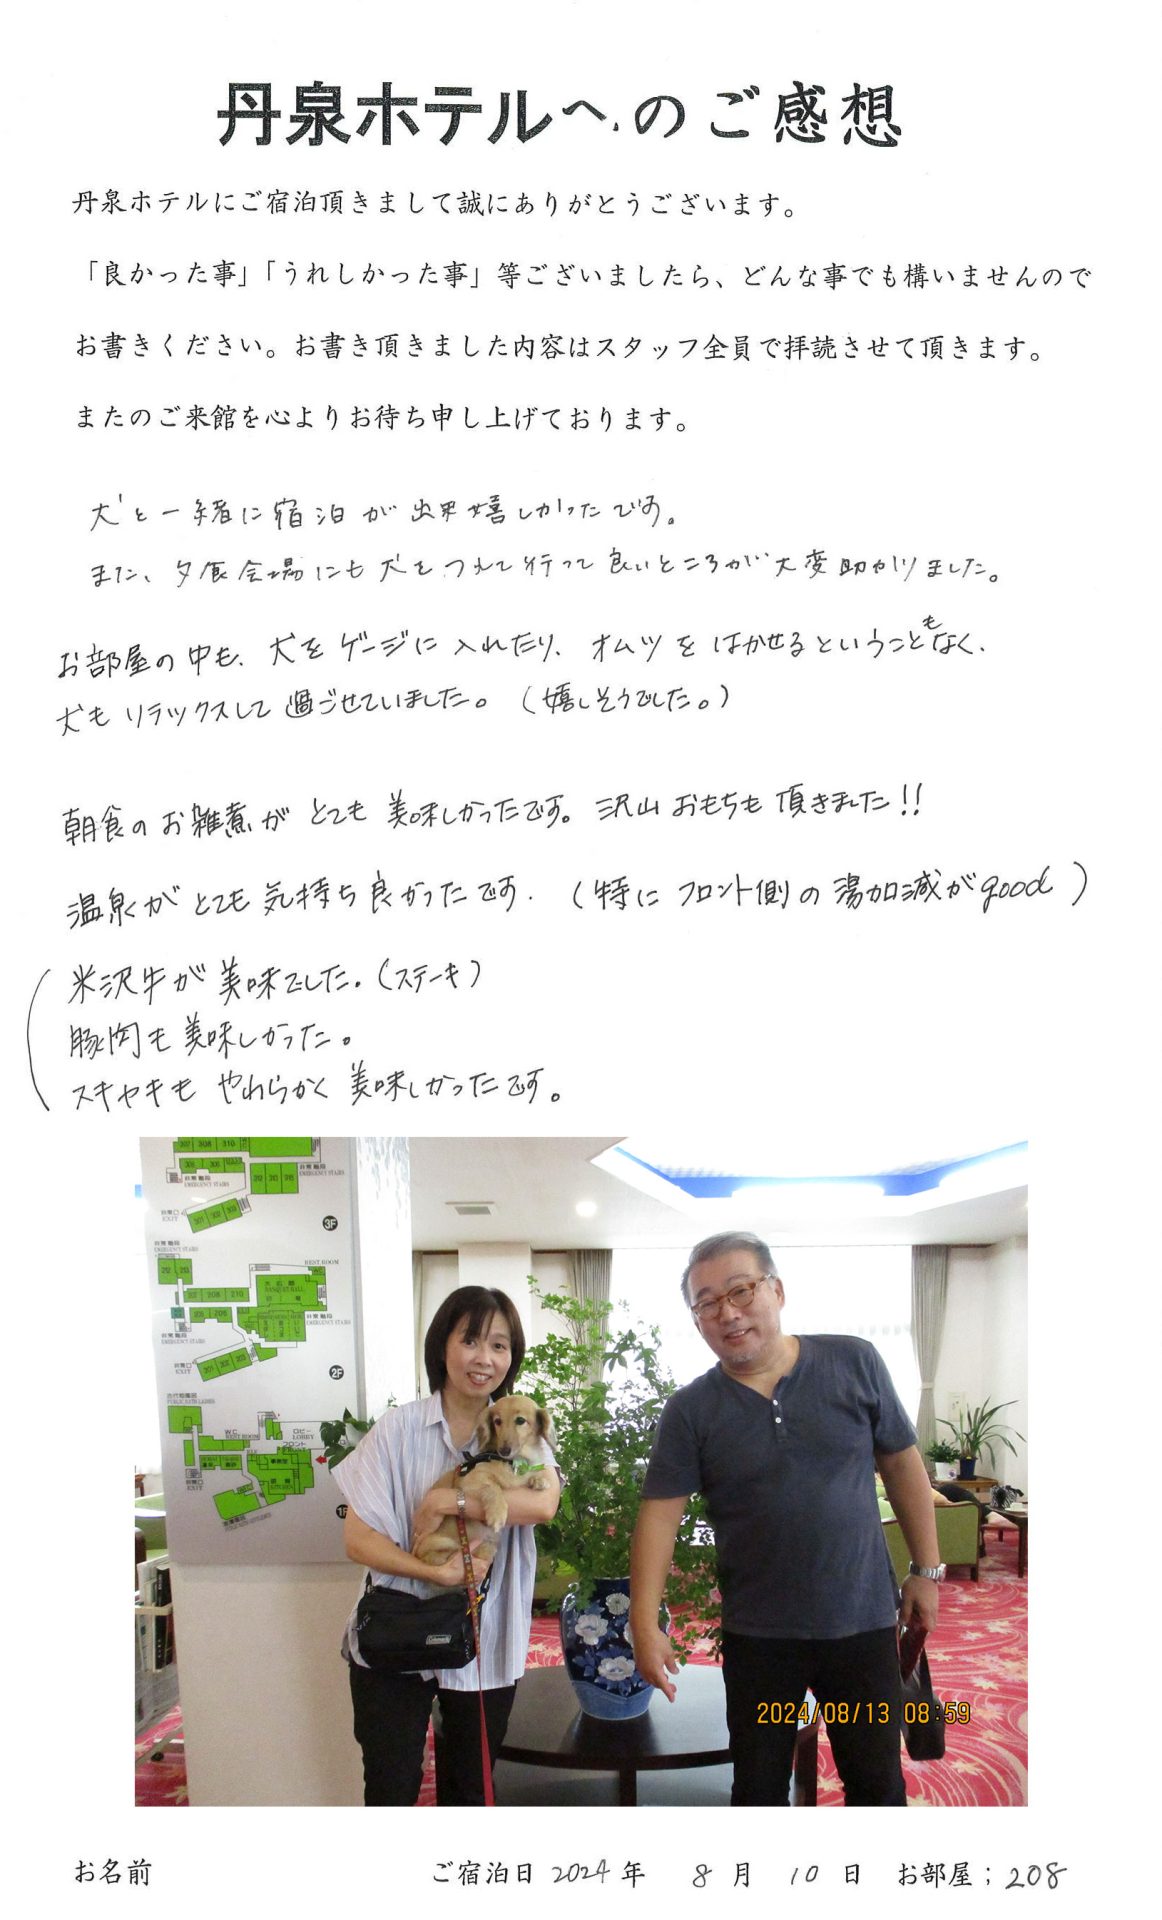 丹泉ホテルへのご感想
丹泉ホテルにご宿泊頂きまして誠にありがとうございます。
「良かった事」「うれしかった事」等ございましたら、どんな事でも構いませんので
お書きください。お書き頂きました内容はスタッフ全員で拝読させて頂きます。
またのご来館を心よりお待ち申し上げております。
犬と一緒に宿泊が出来嬉しかったです。
また、夕食会場にも犬をつれて行って良いところが大変助かりました。
お部屋の中も、犬をゲージに入れたり、オムツをはかせるということもなく、
犬もリラックスして過ごせていました。(嬉しそうでした。)
朝食のお雑煮がとても美味しかったです。沢山おもちも頂きました!!
温泉がとても気持ち良かったです.(特にフロント側の湯加減がgood)
米沢牛が美味でした。(ステーキ)
豚肉も美味しかった。
スキヤキもやわらかく美味しかったです。
307 308 310
非常階段
EMERGENCY STAIRS
312 313 315
非常口
EXIT
301 302 303
3F
非常階段
EMERGENCY STAIRS
212 213
REST ROOM
W.C
208 210
大広間
BANQUET HALL
205 206
非常階段
EMERGENCY STAIRS
非常口
EXIT
201 202 203
2F
W.C
REST ROOM
ロビー
LOBBY
フロント
事務室
非常口
EXIT
1F
Coleman
2024/08/13 08:59
お名前 ご宿泊日 2024年 8月 10日 お部屋;208